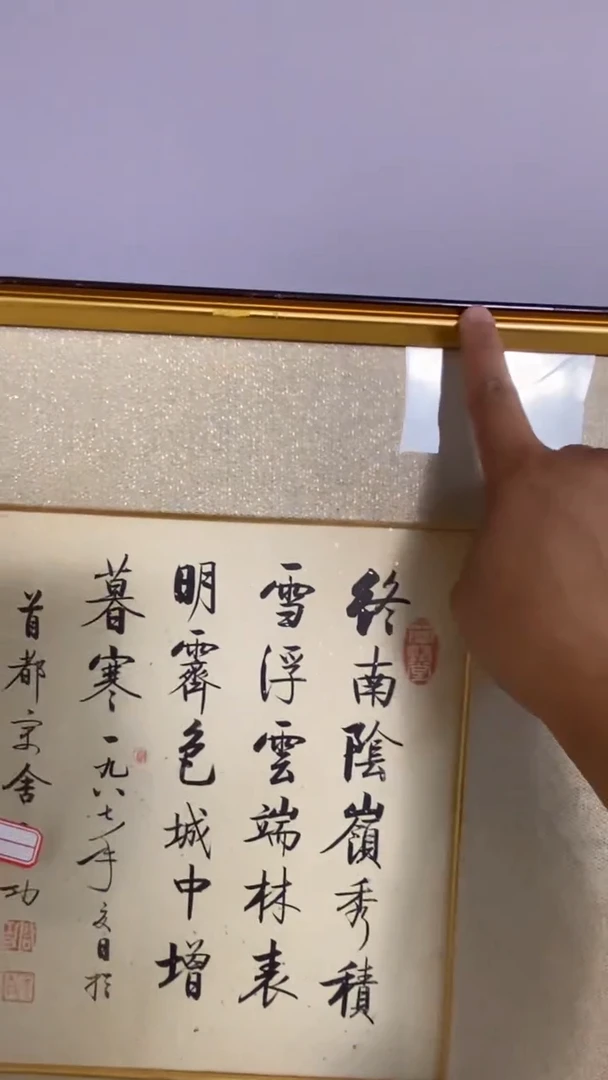 終南陰嶺秀積
雪浮雲端林表
明霽色城中增
暮寒一九八七年夏日於
首都舍功